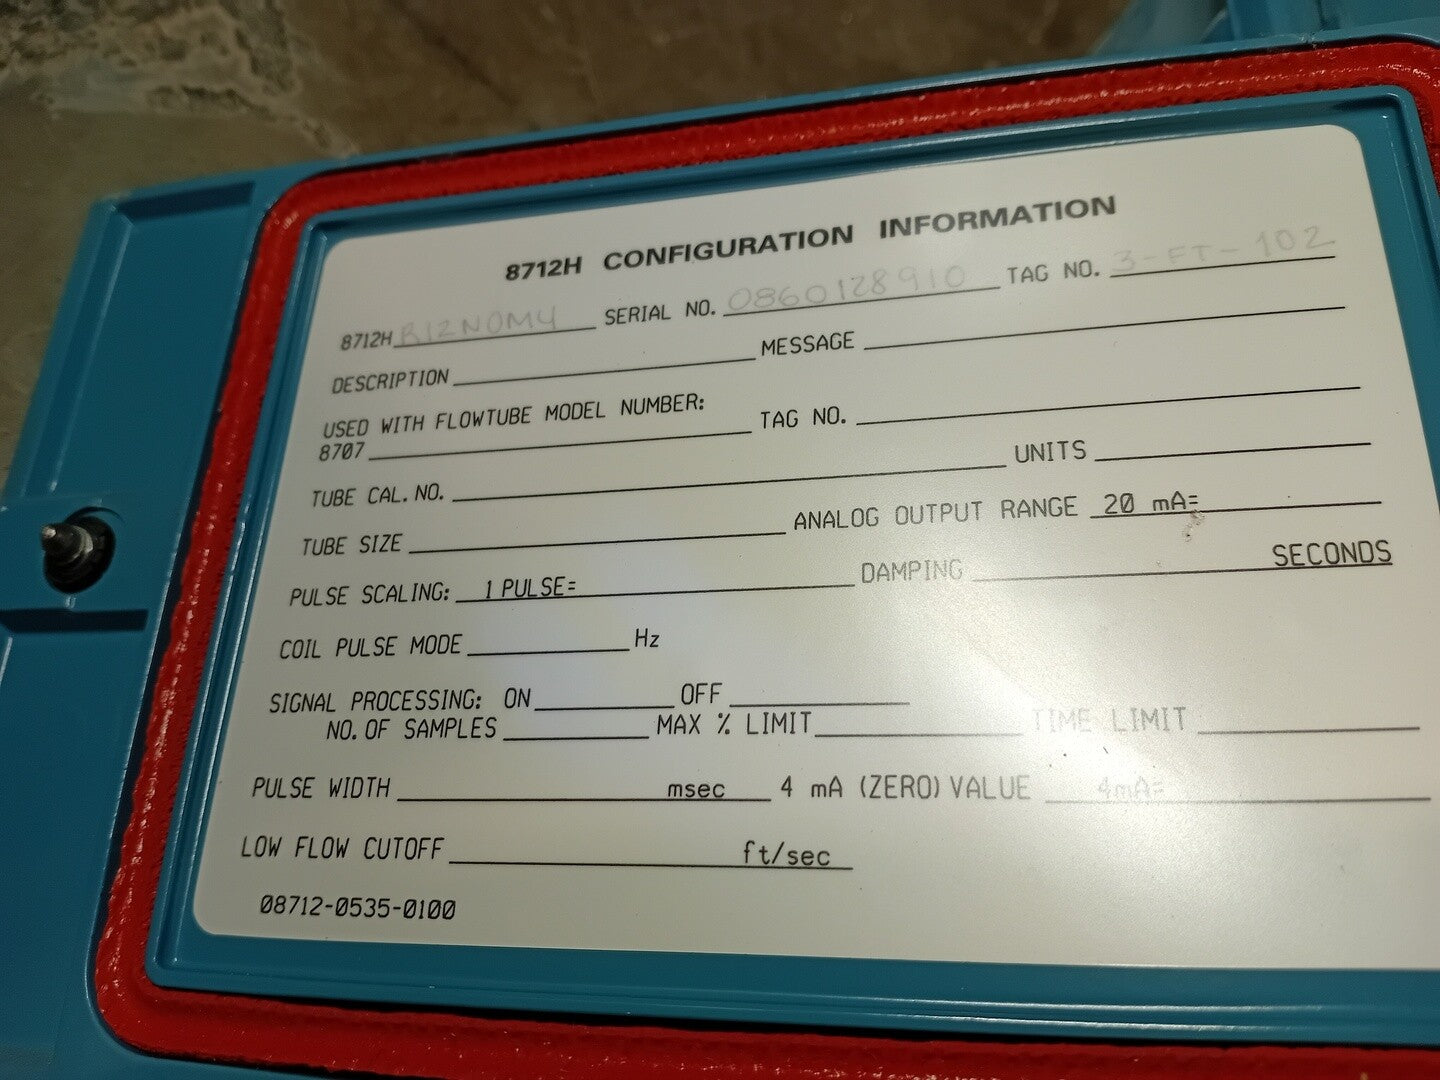 8712H CONFIGURATION INFORMATION
8712H R12N0M4 SERIAL NO. 0860128910 TAG NO. 3-FT-102
DESCRIPTION MESSAGE
USED WITH FLOWTUBE MODEL NUMBER:
8707 TAG NO.
TUBE CAL. NO. UNITS
TUBE SIZE ANALOG OUTPUT RANGE 20 mA=
PULSE SCALING: 1 PULSE= DAMPING SECONDS
COIL PULSE MODE Hz
SIGNAL PROCESSING: ON OFF
NO. OF SAMPLES MAX % LIMIT TIME LIMIT
PULSE WIDTH msec 4 mA (ZERO) VALUE 4mA=
LOW FLOW CUTOFF ft/sec
08712-0535-0100